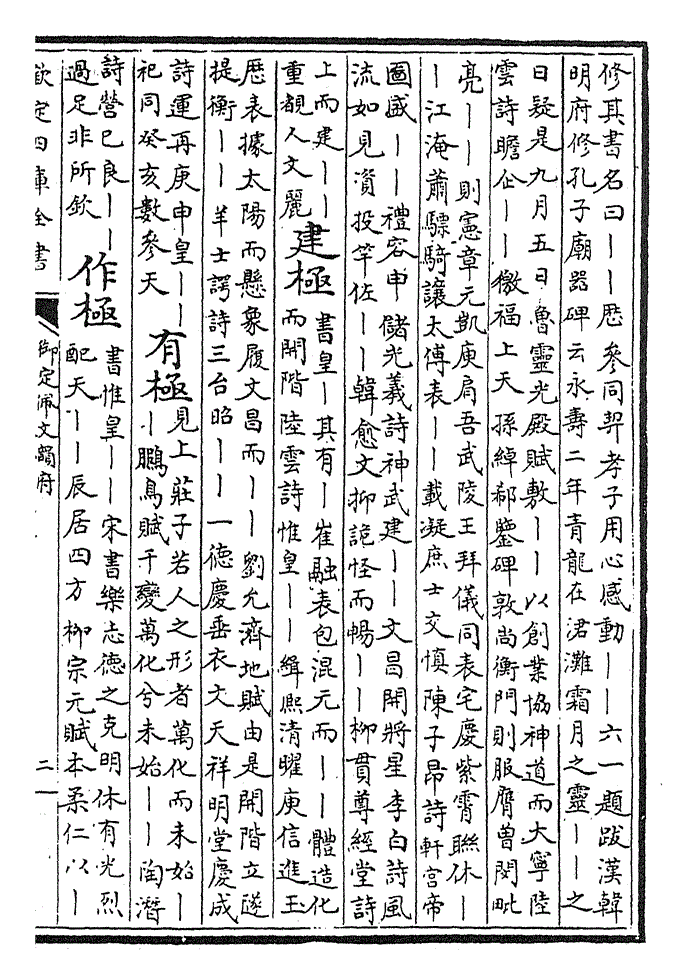 修其書名曰——歷參同契孝子用心感動——六一題跋漢韓
明府修孔子廟器碑云永壽二年青龍在涒灘霜月之靈——之
日疑是九月五日魯靈光殿賦敷——以創業協神道而大寧陸
雲詩瞻企——徼福上天孫綽郗鑒碑敦尚衡門則服膺曾閔毗
亮——則憲章元凱庾肩吾武陵王拜儀同表宅慶紫霄聯休—
—江淹蕭驃騎讓太傅表——載凝庶士交慎陳子昂詩軒宮帝
圖盛——禮容申儲光羲詩神武建——文昌開將星李白詩風
流如見資投竿佐——韓愈文抑詭怪而暢——柳貫尊經堂詩
上而建——
重覩人文麗
建極
書皇—其有—崔融表包混元而——體造化
而開階陸雲詩惟皇——緝熙清曜庾信進玉
歷表據太陽而懸象履文昌而——劉允濟地賦由是開階立遂
提衡——羊士諤詩三台昭——一德慶垂衣文天祥明堂慶成
詩運再庚申皇——
祀同癸亥數參天
有極
見上莊子若人之形者萬化而未始—
—鵩鳥賦千變萬化兮未始——陶潛
詩營已良——
過足非所欽
作極
書惟皇——宋書樂志德之克明休有光烈
配天——辰居四方柳宗元賦本柔仁以—
欽定四庫全書
御定佩文韻府
二